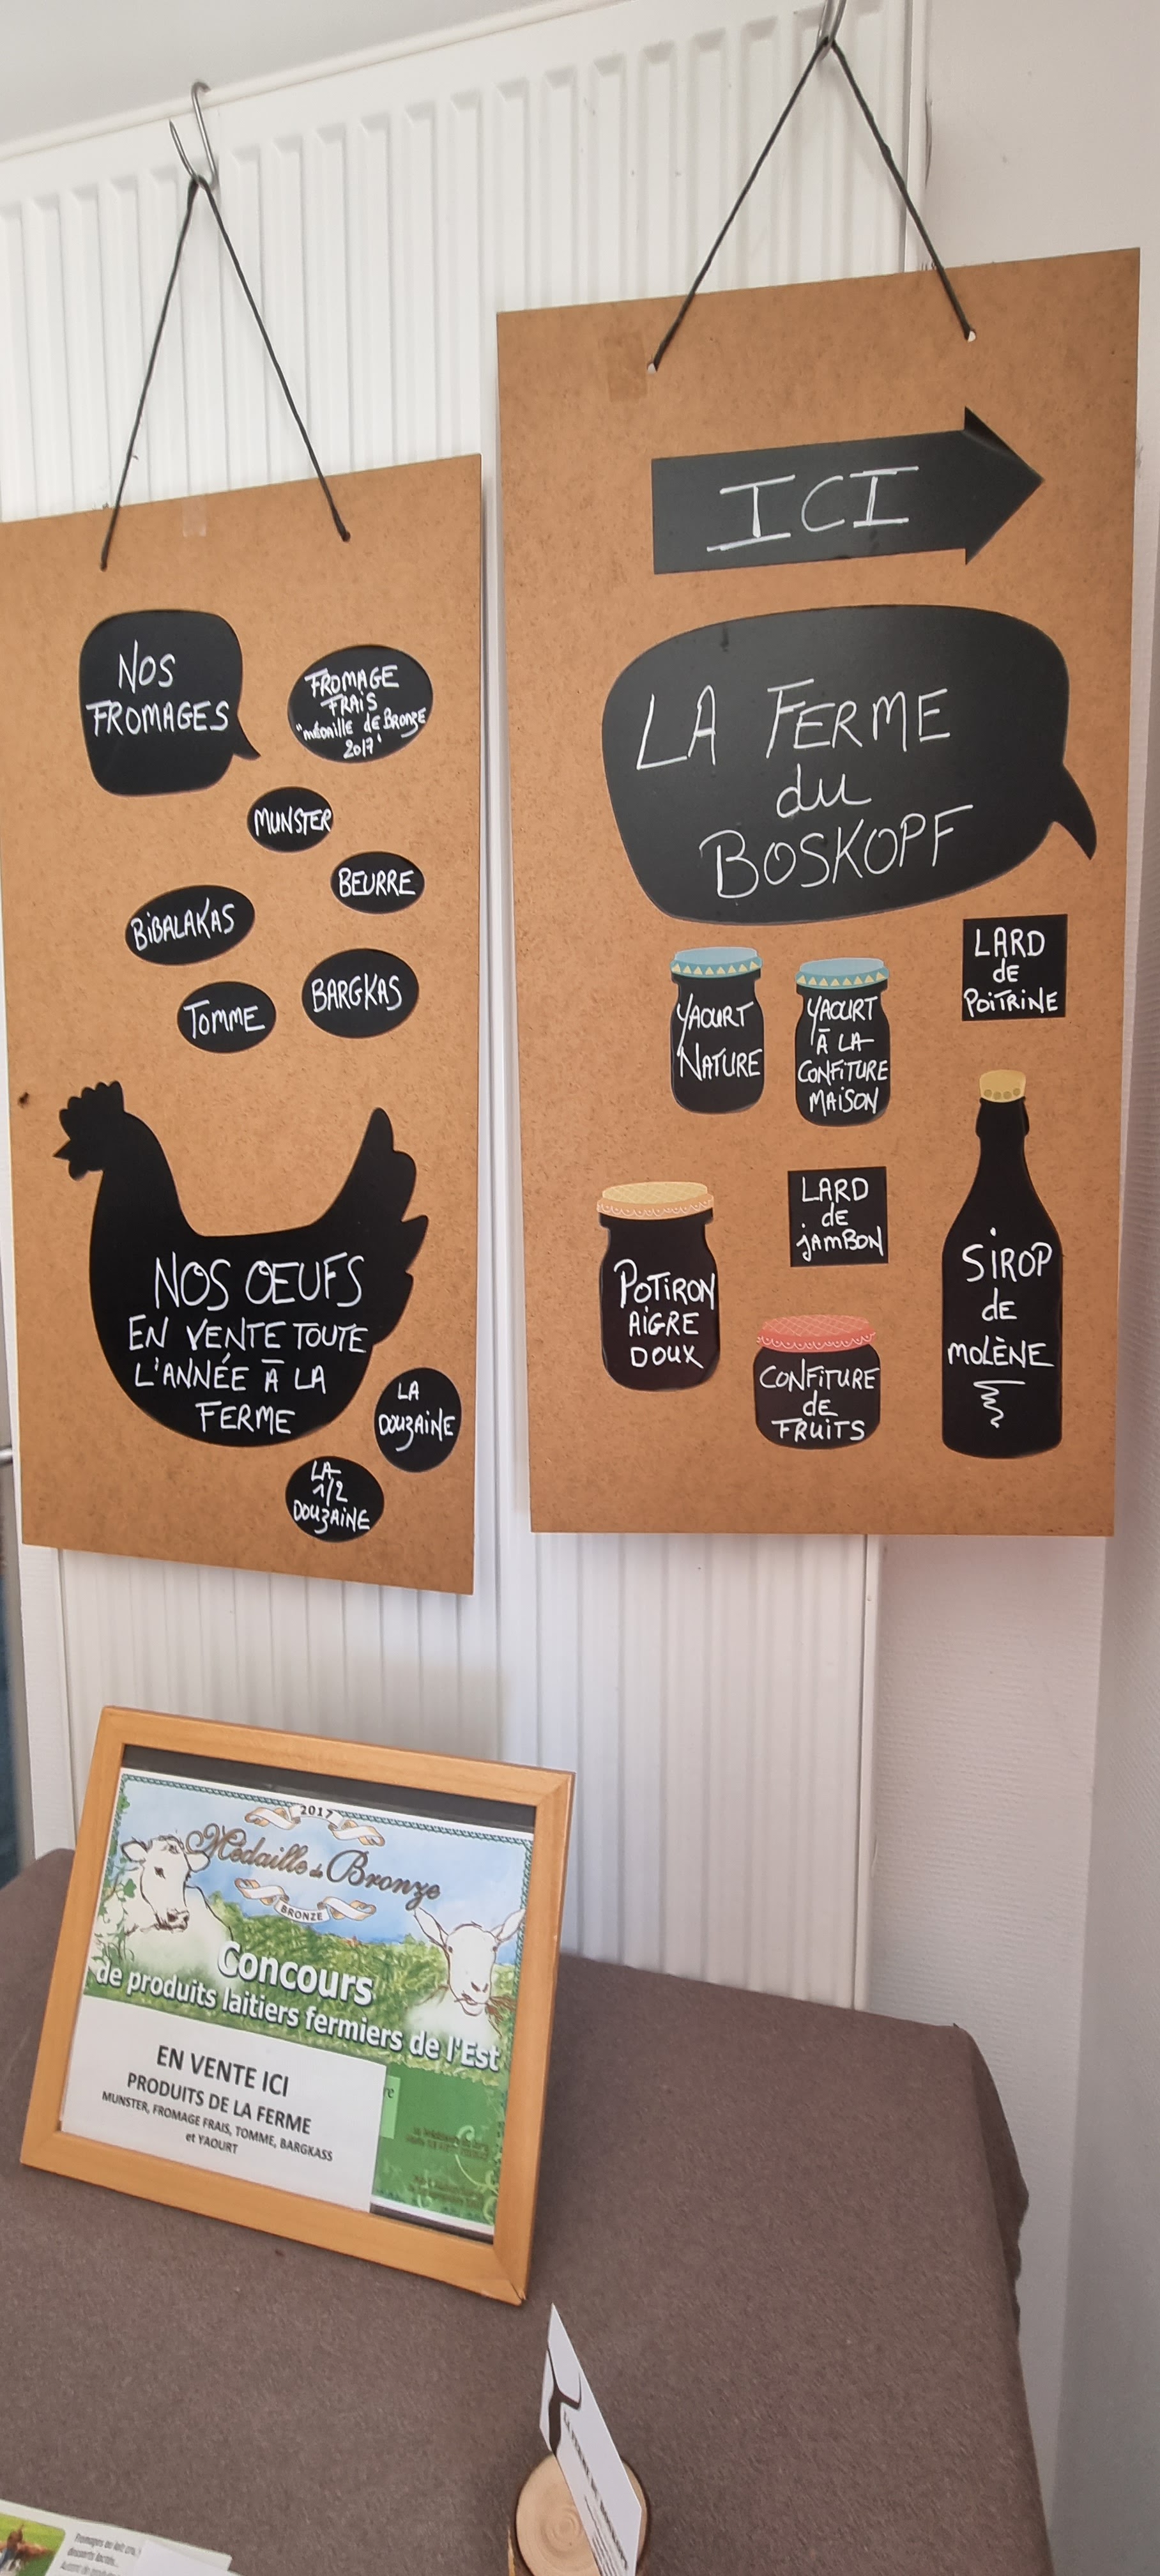 NOS
FROMAGES
FROMAGE
FRAIS
"médaille de Bronze
2017"
MUNSTER
BEURRE
BiBALAKAS
BARGKAS
TOMME
NOS OEUFS
EN VENTE TOUTE
L'ANNÉE À LA
FERME
LA
DOUZAiNE
LA
1/2
DOUZAiNE
ICI
LA FERME
du
BOSKOPF
LARD
de
POiTRINE
YAOURT
NATURE
YAOURT
À LA
CONFiTURE
MAiSON
LARD
de
jAMBON
SiROP
de
MOLÈNE
POTiRON
AiGRE
DOUX
CONFiTURE
de
FRUiTS
2017
Médaille de Bronze
BRONZE
Concours
de produits laitiers fermiers de l'Est
EN VENTE ICI
PRODUITS DE LA FERME
MUNSTER, FROMAGE FRAIS, TOMME, BARGKASS
et YAOURT
re
Fromages au lait cru,
desserts lactés...